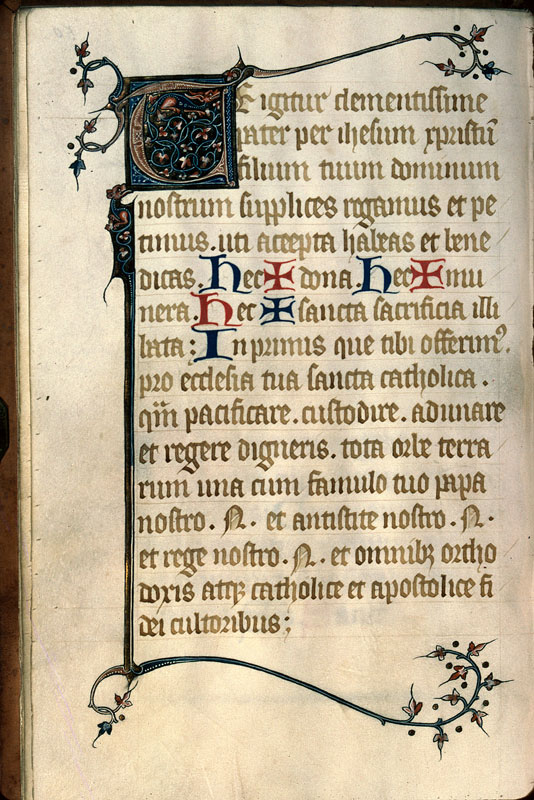 Te igitur clementissime
pater per ihesum xpristū
filium tuum dominum
nostrum supplices rogamus et pe
timus. uti accepta habeas et bene
dicas. Hec ✠ dona. Hec ✠ mu
nera. Hec ✠ sancta sacrificia illi
bata; In primis que tibi offerimꝰ.
pro ecclesia tua sancta catholica.
qm̄ pacificare. custodire. adunare
et regere digneris. tota orbe terra
rum una cum famulo tuo papa
nostro. N. et antistite nostro. N.
et rege nostro. N. et omnibꝫ ortho
doxis atqꝫ catholice et apostolice fi
dei cultoribus;